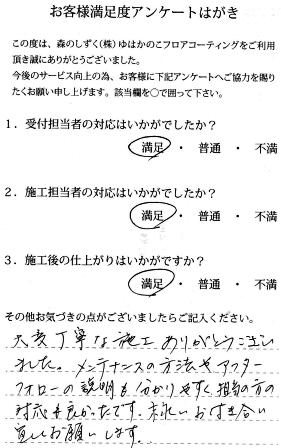 お客様満足度アンケートはがき
この度は、森のしずく(株)ゆはかのこフロアコーティングをご利用
頂き誠にありがとうございました。
今後のサービス向上の為、お客様に下記アンケートへご協力を賜り
たくお願い申し上げます。該当欄を○で囲って下さい。
1．受付担当者の対応はいかがでしたか？
満足 ・ 普通 ・ 不満
2．施工担当者の対応はいかがでしたか？
満足 ・ 普通 ・ 不満
3．施工後の仕上がりはいかがですか？
満足 ・ 普通 ・ 不満
その他お気づきの点がございましたらご記入ください。
大変丁寧な施工ありがとうござい
ました。メンテナンスの方法やアフター
フォローの説明も分かりやすく担当の方の
対応も良かったです。末永いお付き合い
宜しくお願いします。